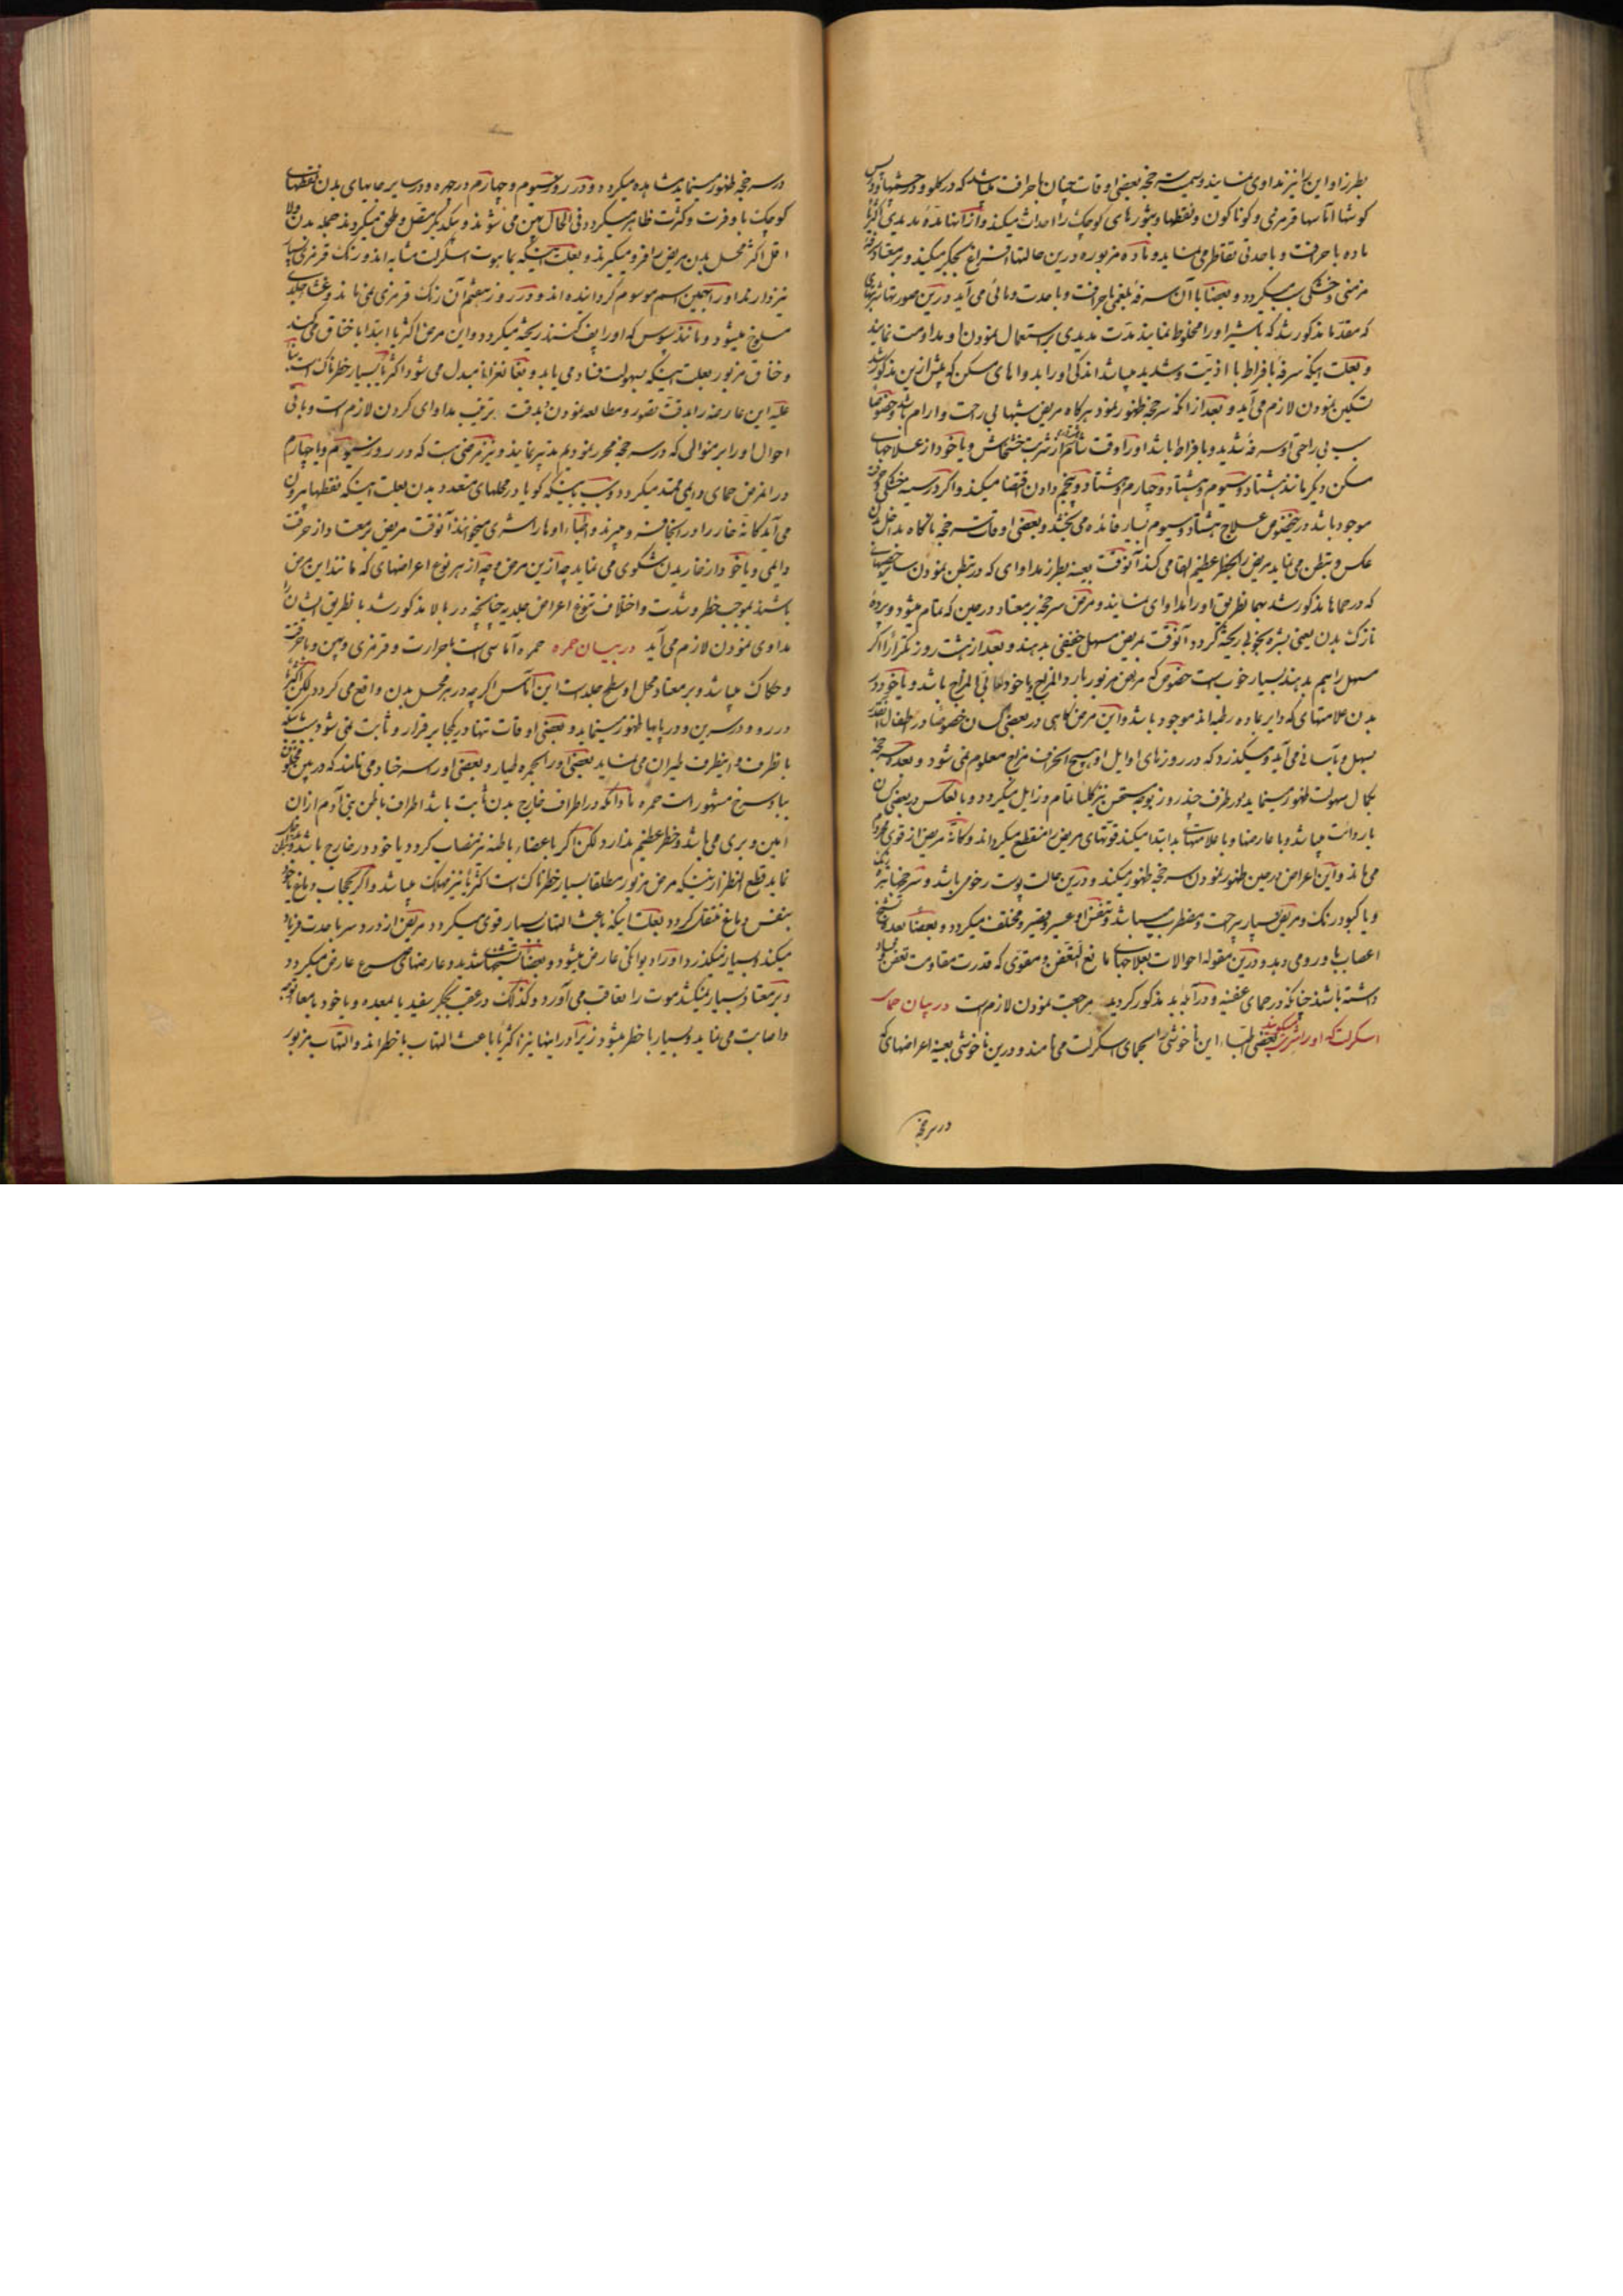 بطرز او این را نیز مداوی نمایند و سمیت سرخجه بعضی اوقات چنان با حرافت میباشد که در کلو و در چشمها و در
کوشها آماسها قرمزی و کوناکون و نقطها و بثورهای کوچک را احداث میکند و از آنها مدة مدیدی اکثر
ماده با حرافت و با حدتی تقاطر می نماید و ماده مزبوره درین حالتها استفراغ بجکر میکند و بر معتاد سرفه
مزمنی و خشکی سبب میکردد و بعضا با آن سرفه بلغمی با حرافت و با حدت و مائی می آید درین صورتها شربتهای
که مقدما مذکور شد که با شیر او را مخلوط نمایند مدت مدیدی بر استعمال نمودن او مداومت نمایند
و بعلت اینکه سرفه بافراط با اذیت و شدید میباشد اندکی او را بدواهای مسکن که پیش ازین مذکور شد
تسکین نمودن لازم می آید و بعد از آنکه سرخجه ظهور نمود هرکاه مریض شبها بی راحت و آرام باشد و خصوصا
سبب بی راحتی او سرفه شدید و بافراط باشد او را وقت شام از شربت خشخاش و یا خود از علاجهای
مسکن دیکر مانند هشتاد و سیوم و هشتاد و چهارم و هشتاد و پنجم دادن اقتضا میکند و اکر در سینه خشکی و حرقت
موجود باشد درینخصوص علاج هشتاد و سیوم بسیار فائده می بخشد و بعضی اوقات سرخجه ناکاه بداخل بدن
عکس و تبطن می نماید مریض را بخطر عظیم القا می کند آنوقت بعینه بطرز مداوای که در تبطن نمودن سایر
که در حماها مذکور شد بهما نطریق او را مداوای نمایند و مرض سرخجه بر معتاد در حین که تمام میشود و پردۀ
نازک بدن یعنی بشره بخودی ریخته کردد آنوقت بمریض مسهل خفیفی بدهند و بعد از هشت روز تکرارا اکر
مسهل را هم بدهند بسیار خوب است خصوص که مریض مزبور بارد المزاج یا خود لعابی المزاج باشد و یا خود در
بدن علامتهای که دایر بماده رطبه اند موجود باشد و این مرض کاهی در بعضی کسان خصوصا در اطفال
سهل و بآسانی می آید و میکذرد که در روزهای اوایل او هیچ انحراف مزاج معلوم نمی شود و بعده سرخجه
بکمال سهولت ظهور مینماید و در ظرف چند روز بوجه مستحسن نیز کلیا تمام و زایل میکردد و بالعکس در بعضی کسان
با ردائت میباشد و با عارضها و با علامتهای بد ابتدا میکند قوتهای مریض را منقطع میکرداند و کانه مریض از قوی محروم
می ماند و این اعراض در حین ظهور نمودن سرخجه ظهور میکند و درین حالت پوست رخوی باشد و سرخجها تیره
و یا کبود رنک و مریض بسیار بیراحت و مضطرب میباشد و تنفس او عسیر و قصیر و مختلف میکردد و بعضا بعده تشنج
اعصاب باو رومی دهد و درین مقوله احوالات بعلاجهای مانع التعفن و مقوی که قدرت مقاومت تعفن و فساد
داشته باشند چنانکه در حمای عفنیه و در آبله بد مذکور کردید مراجعت نمودن لازم است در بیان حمای
اسکرلت که او را شری میکویند بعضی اطباء این ناخوشی را بحمای اسکرلت می نامند و درین ناخوشی بعینه اعراضهای که
در سرخجه
در سرخجه ظهور مینماید مشاهده میکردد و در روز سیوم و چهارم در چهره و در سایر جاهای بدن نقطهای
کوچک با وفرت و کثرت ظاهر میکردد فی الحال پهن می شوند و بیکدیکر متصل و ملحق میکردند جمله بدن و لا
اقل اکثر محل بدن مریض را فرو میکیرند و بعلت اینکه بماهوت اسکرلت مشابه اند و رنک قرمزی
نیز دارند او را بهمین اسم موسوم کردانیده اند و در روز هفتم آن رنک قرمزی نمی ماند و غشاء جلد
مسلوخ میشود و مانند سبوس که او را پف کنند ریخته میکردد و این مرض اکثریا ابتدا با خناق می کند
و خناق مزبور بعلت اینکه بسهولت فساد می یابد و بغنغرانا مبدل می شود اکثریا بسیار خطرناک است
علیه این عارضه را بدقت تصور و مطالعه نمودن و بدقت ترقب بمداوای کردن لازم است و باقی
احوال او را بر منوالی که در سرخجه محرر نمودیم تدبیر نمایند و نیز مرضی هست که در روز سیوم و یا چهارم
در آنمرض حمای دایمی ممتد میکردد و سبب اینکه کویا در محلهای متعدد بدن بعلت اینکه نقطها بیرون
می آید کانه خار را در آنجا فرو میبرند و اطباء او را شری میخوانند آنوقت مریض بر معتاد از حرقت
دایمی و یا خود از خاریدن شکوی می نماید چه ازین مرض و چه از هر نوع اعراضهای که مانند این مرض
باشند بموجب خطر و شدت و اختلاف تنوع اعراض جلدیه چنانچه در بالا مذکور شد بانطریق ایشان را
مداوی نمودن لازم می آید در بیان حمره حمره آماسی است با حرارت و قرمزی و پهن و با حرقت
و حکاک میباشد و بر معتاد محل او سطح جلد است این آماس اکرچه در هر محل بدن واقع می کردد لکن اکثر
در رو و در سرین و در پایها ظهور مینماید و بعضی اوقات تنها در یکجا برقرار و ثابت نمی شود
بانطرف و اینطرف طیران می نماید بعضی او را بحمره طیار و بعضی او را سرخباد می نامند که در بین
بباد سرخ مشهور است حمره مادامکه در اطراف خارج بدن ثابت باشد اطراف باطن بنی آدم از آن
امین و بری می باشد و خطر عظیم ندارد لکن اکر باعضاء باطنه نیز منصب کردد یا خود در خارج باشد
نماید قطع النظر از اینکه مرض مزبور مطلقا بسیار خطرناک است اکثریا نیز مهلک میباشد و اکر بحجاب دماغ یا خود
بنفس دماغ منتقل کردد بعلت اینکه باعث التهاب بسیار قوی میکردد مریض از درد سر با حدت فریاد
میکند بسیار نمیکذرد او را دیوانکی عارض میشود و بعضا تشنجهای شدید و عارضهای صرع عارض میکردد
و بر معتاد بسیار نمیکشد موت را تعاقب می آورد و کذلک در عقب بجکر سفید یا بمعده و یا خود بامعا
و اصابت می نماید بسیار با خطر میشود زیرا در اینها نیز اکثریا باعث التهاب با خطر اند و التهاب مزبور